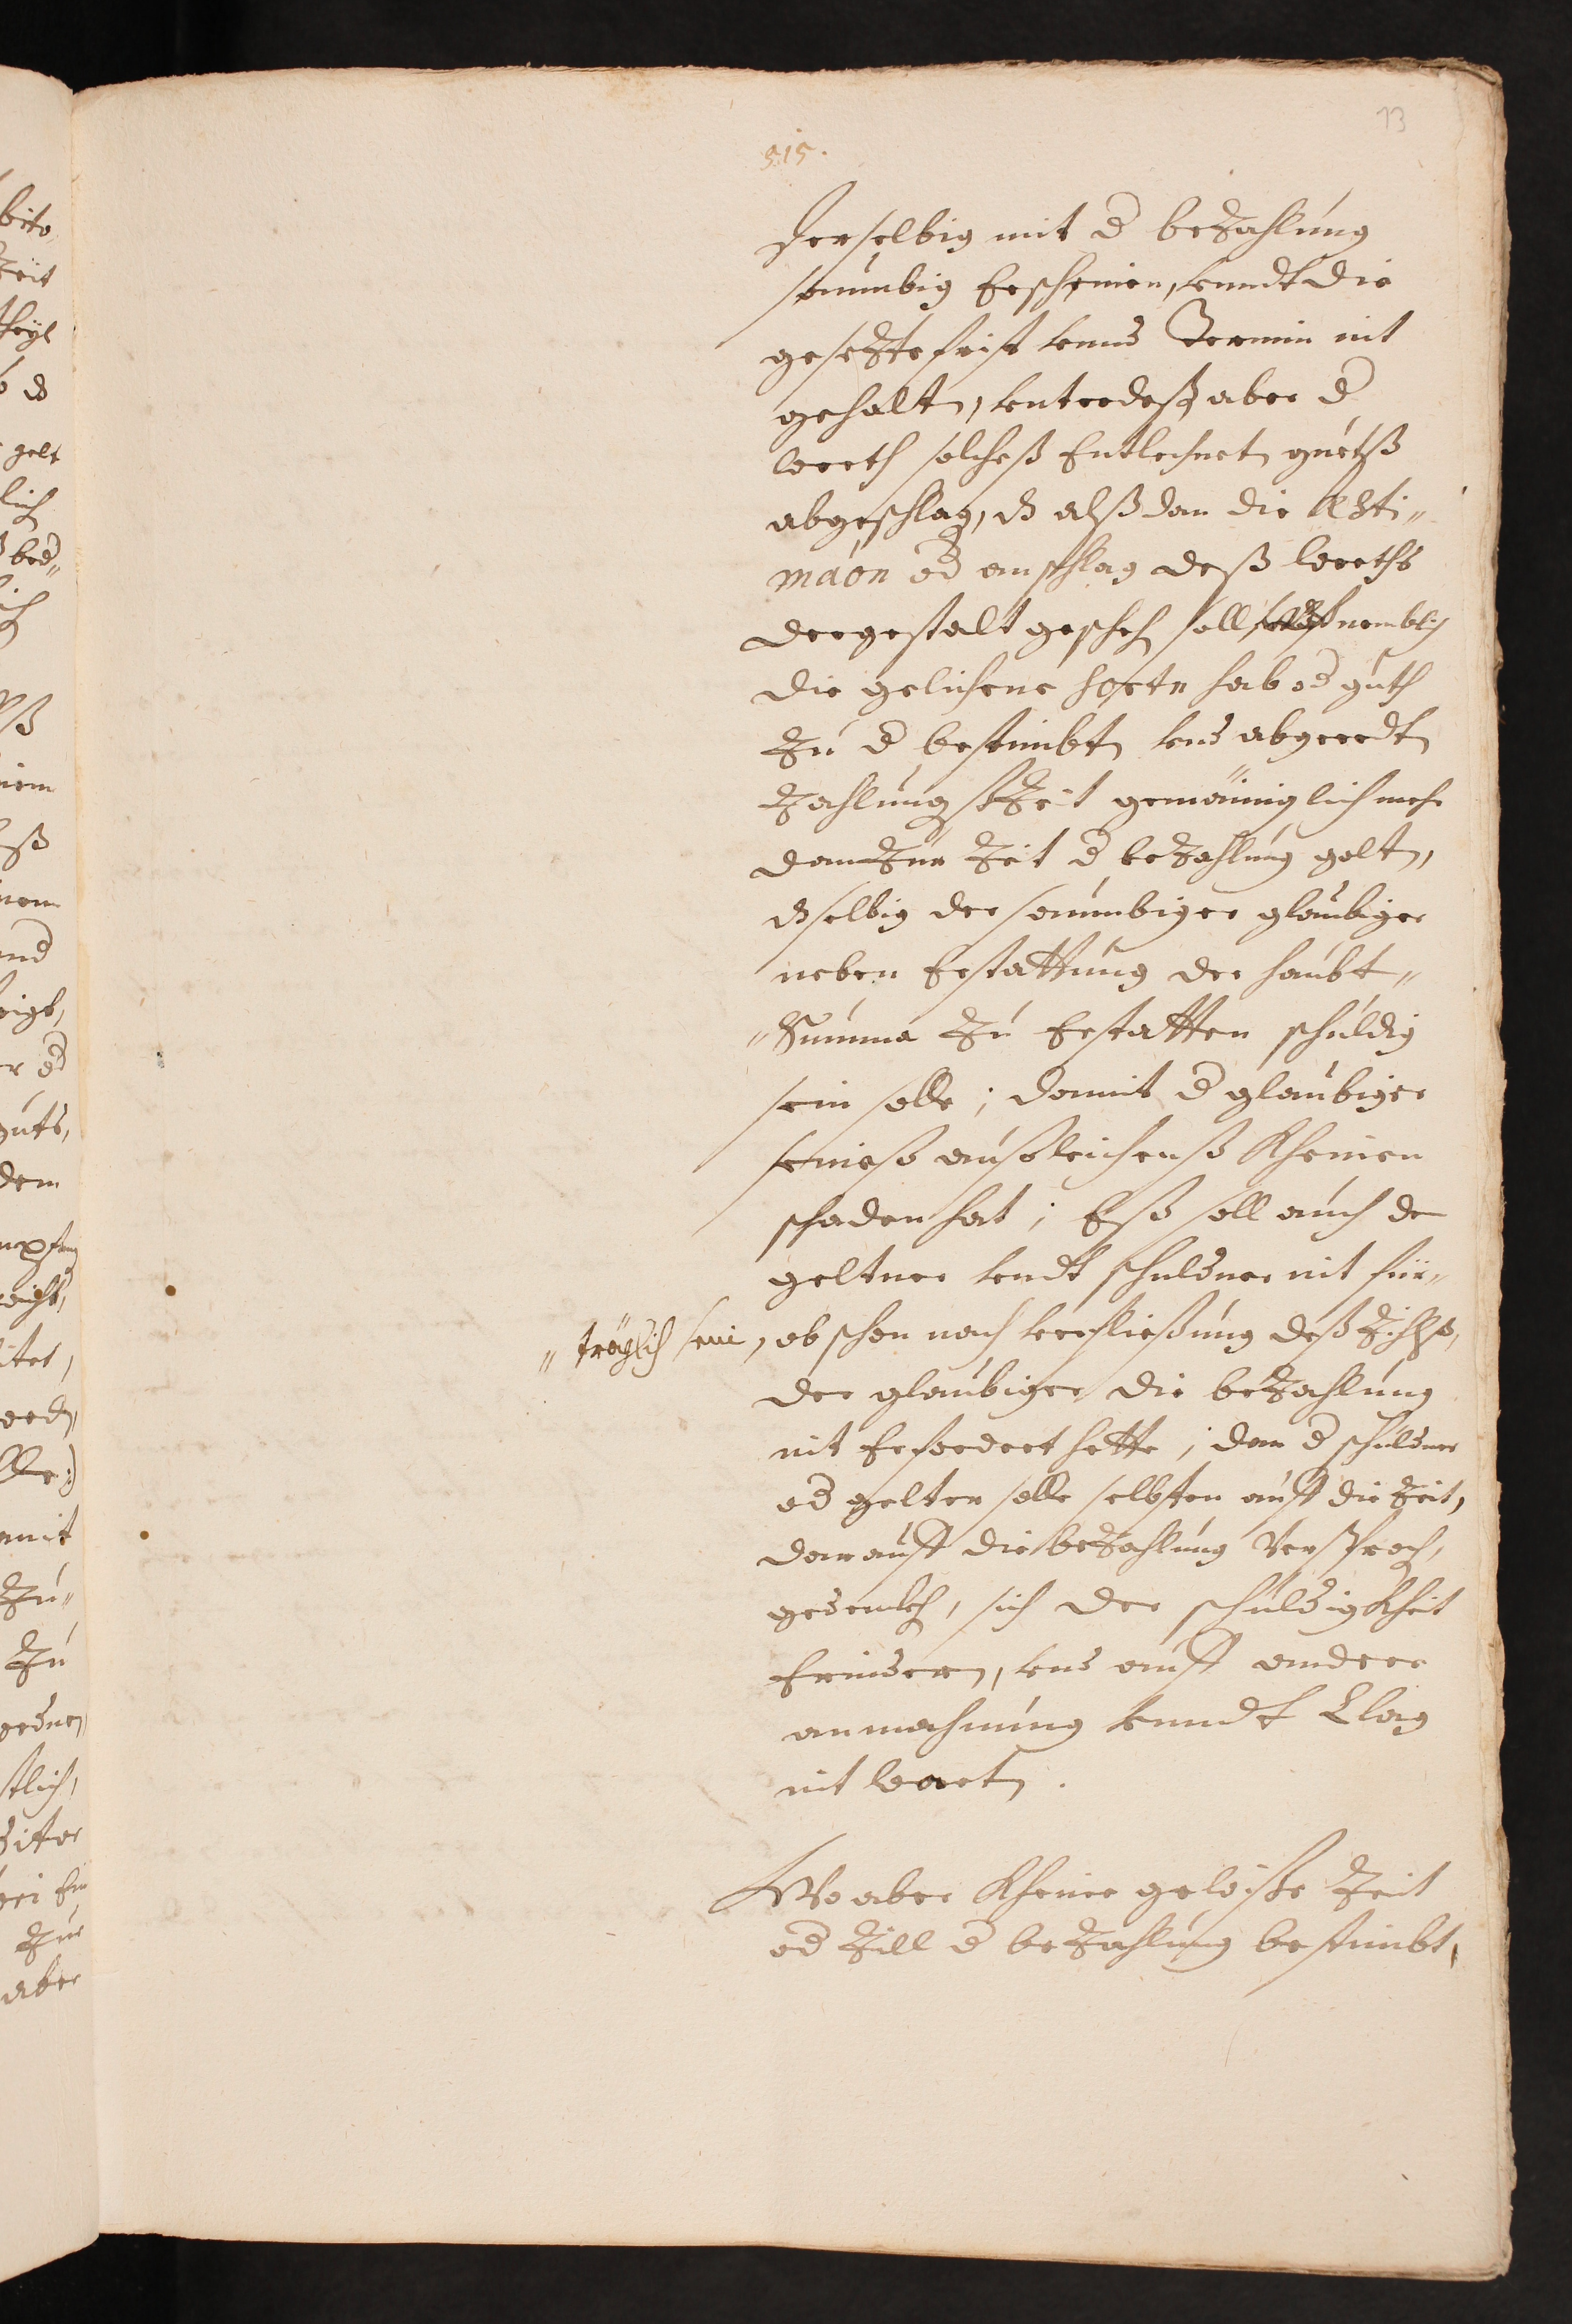 13
515.
derselbig mit d bezahlung
saumbig Erscheinen, vnndt die
gesezte frist vnnd Termin nit
gehalten, vnterdeß aber d
werth solcheß Entlehneten guetß
abgeschlag, dz alß dan die Æsti„
maon od anschlag deß werths
dergestalt gescheh soll, nemblich
die gelihene sortn hab od guth
Zu d bestimbten vnd abgeredten
Zahlungß Zeit gemäiniglich mehr
dan Zur Zeit d bezahlung golten,
dzselbig der saumbiger glaubiger
neben Erstattung der haubt„
„Summa Zu Erstatten schuldig
sein solle; damit d glaubiger
seineß außleihenß Kheinen
schaden hat; Eß soll auch de
geltner vndt schuldner nit für„
„träglich sein, ob schon nach verfließung deß Zihlß,
der glaubiger die bezahlung
nit Erfordert hette; dan d schuldner
od gelter solle selbsten auff die Zeit,
darauff die bezahlung Versproch,
gedenckh, sich der schuldigkheit
Erindern, vnd auff andere
anmahnung vnndt Clag
nit warten.
Wo aber Kheine gewiße Zeit
od Zill d bezahlung bestimbt,